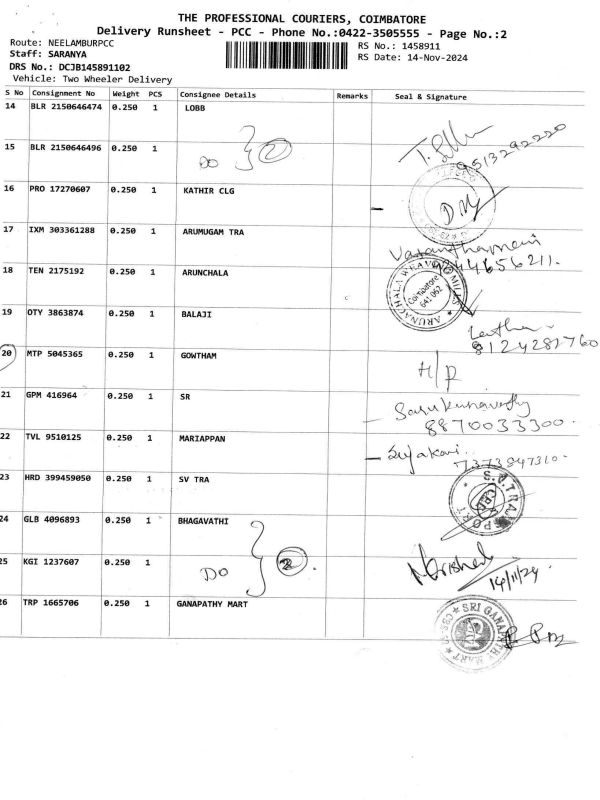 THE PROFESSIONAL COURIERS, COIMBATORE
Delivery Runsheet - PCC - Phone No.:0422-3505555 - Page No.:2
Route: NEELAMBURPCC RS No.: 1458911
Staff: SARANYA RS Date: 14-Nov-2024
DRS No.: DCJB145891102
Vehicle: Two Wheeler Delivery
S No Consignment No Weight PCS Consignee Details Remarks Seal & Signature
14 BLR 2150646474 0.250 1 LOBB
15 BLR 2150646496 0.250 1 DO 2 9513292220
16 PRO 17270607 0.250 1 KATHIR CLG
17 IXM 303361288 0.250 1 ARUMUGAM TRA
18 TEN 2175192 0.250 1 ARUNCHALA ARUNACHALA WEAVING MILLS Coimbatore 641 062
19 OTY 3863874 0.250 1 BALAJI
8124281760
20 MTP 5045365 0.250 1 GOWTHAM H/P
21 GPM 416964 0.250 1 SR
8870033300
22 TVL 9510125 0.250 1 MARIAPPAN
7373847310
23 HRD 399459050 0.250 1 SV TRA
24 GLB 4096893 0.250 1 BHAGAVATHI
25 KGI 1237607 0.250 1 DO 2 14/11/24
26 TRP 1665706 0.250 1 GANAPATHY MART SRI GANAPATHY MART